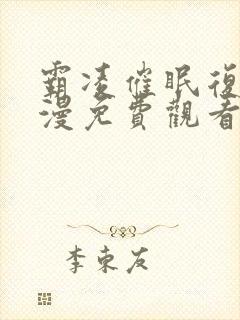 霸凌催眠復
漫免費觀看
李東友